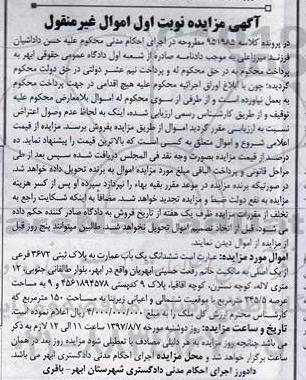 آگهی مزایده نوبت اول اموال غیر منقول
در پرونده کلاسه ۹۵۱۹۸۵ مطروحه در اجرای احکام مدنی محکوم علیه حسن داداشیان
فرزند میرزاعلی به موجب دادنامه صادره از شعبه اول دادگاه عمومی حقوقی ابهر به
پرداخت محکوم به در حق محکوم له و پرداخت نیم عشر دولتی در حق دولت محکوم
گردیده؛ چون با ابلاغ اوراق اجرائیه محکوم علیه هیچ اقدامی در جهت پرداخت محکوم
به بعمل نیاورده است و از طرفی از سوی محکوم له اموال بلامعارض محکوم علیه
توقیف و از طریق کارشناس رسمی ارزیابی شده، اینک به لحاظ عدم وصول اعتراض
نسبت به ارزیابی مقرر گردید اموال از طریق مزایده بفروش برسد. مزایده از قیمت
اعلامی شروع و اموال متعلق به کسی است که بالاترین قیمت را پیشنهاد نماید. ده
درصد از قیمت مزایده بصورت وجه نقد فی المجلس دریافت شده سپس بعد از طی
مراحل قانونی و پرداخت الباقی مبلغ مورد مزایده اموال به برنده تحویل داده خواهد شد.
در صورتیکه برنده مزایده در موعد مقرر بقیه بهاء را نپردازد سپرده او پس از کسر هزینه
مزایده به نفع دولت ضبط و مزایده تجدید خواهد شد. مضافاً به اینکه شکایت راجع به
تخلف از مقررات مزایده ظرف یک هفته از تاریخ فروش به دادگاه صادر کننده حکم داده
می شود، قبل از اتخاذ تصمیم اموال تحویل نخواهد شد. طالبین میتوانند پنج روز قبل
از مزایده از اموال دیدن نمایند.
اموال مورد مزایده: عبارت است ششدانگ یک باب عمارت به پلاک ثبتی ۳۶۷۲ فرعی
از یک اصلی به مالکیت خانم رفعت خمسئی ابهریان واقع در ابهر، بلوار طالقانی جنوبی، ۱۲
متری لاله، کوچه نسترن، کوچه اقاقیا، پلاک ۹ کدپستی ۴۵۶۱۸۹۴۵۷۸ و ۹ به مساحت
عرصه ۲۴۵/۵ مترمربع با موقعیت شمالی و اعیانی زیربنا به مساحت ۱۵۰ مترمربع که
کارشناس محترم ارزش کل ملک را به مبلغ ۴/۰۰۰/۰۰۰/۰۰۰ ریال برآورد نموده است.
تاریخ و ساعت مزایده: روز دوشنبه مورخه ۱۳۹۷/۸/۷ ساعت ۱۱ الی ۱۲ لازم به ذکر
می باشد چنانچه روز مزایده به هر دلیلی مصادف با تعطیلی شود مزایده روز بعد در همان
ساعت برگزار خواهد شد و محل مزایده اجرای احکام مدنی دادگستری ابهر می باشد.
دادورز اجرای احکام مدنی دادگستری شهرستان ابهر- باقری